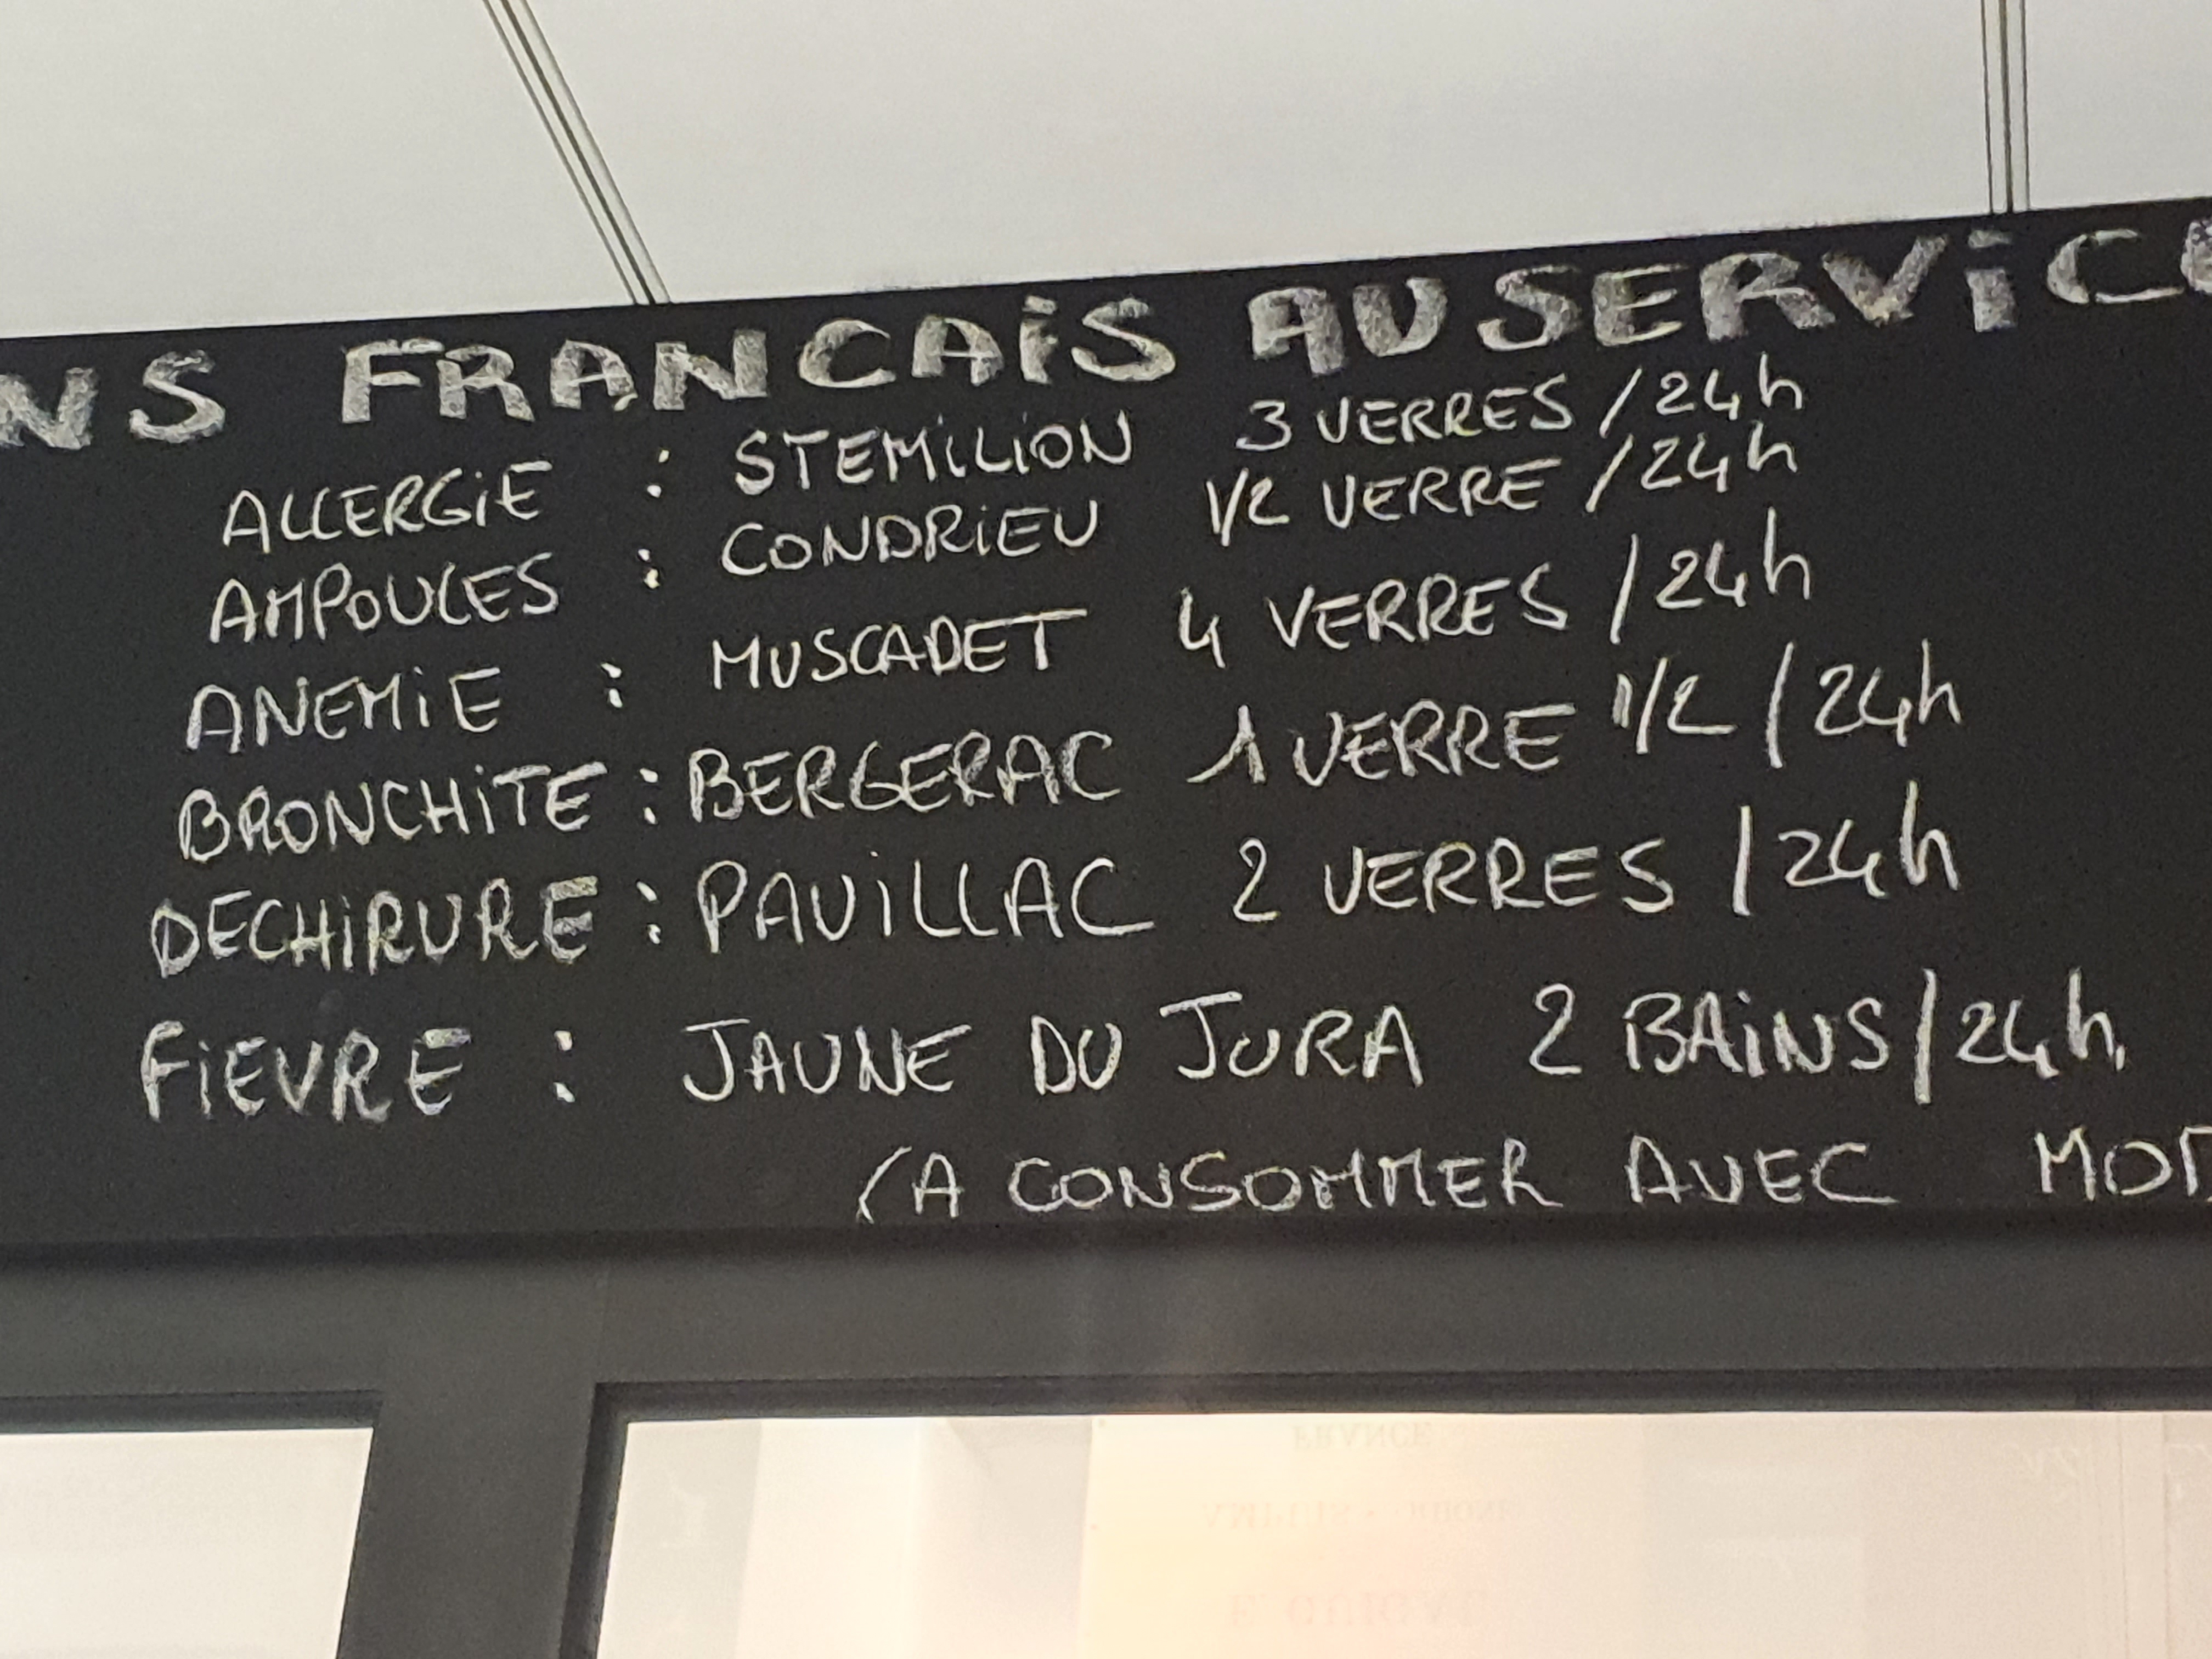 NS FRANCAIS AU SERVICE
ALLERGIE : STEMILION 3 VERRES /24h
AMPOULES : CONDRIEU 1/2 VERRE /24h
ANEMIE : MUSCADET 4 VERRES /24h
BRONCHITE : BERGERAC 1 VERRE 1/2 /24h
DECHIRURE : PAUILLAC 2 VERRES /24h
FIEVRE : JAUNE DU JURA 2 BAINS/24h.
(A CONSOMMER AVEC MOD
FRANCE